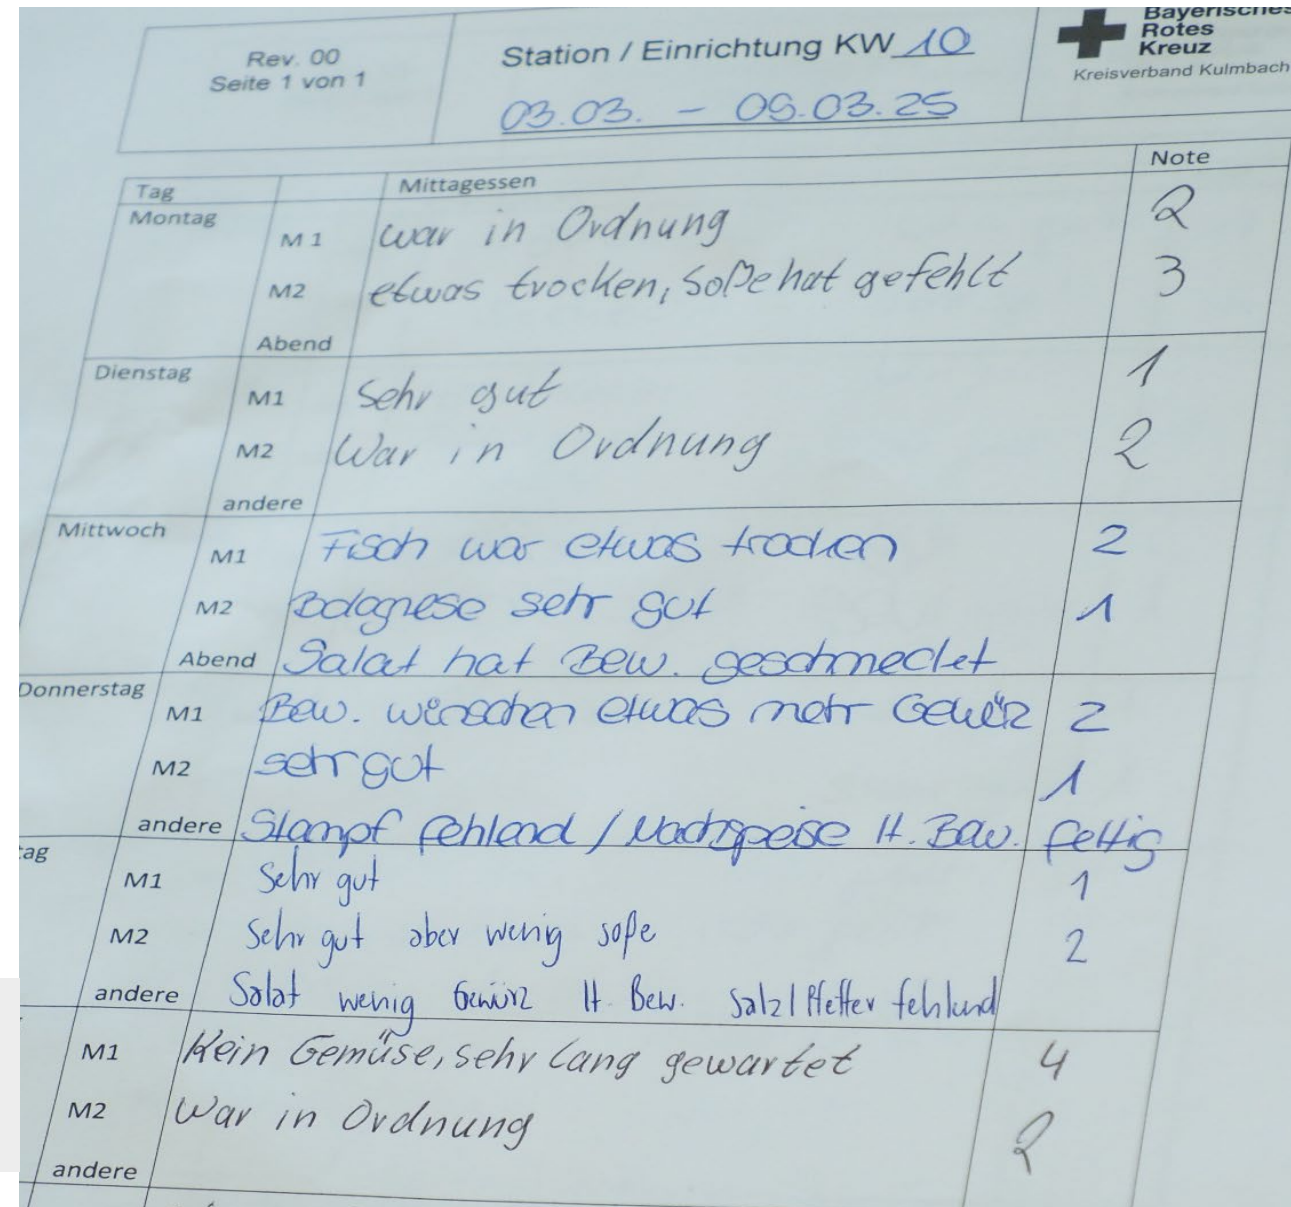 Rev. 00
Seite 1 von 1
Station / Einrichtung KW 10
03.03. - 09.03.25
Bayerisches
Rotes
Kreuz
Kreisverband Kulmbach
Tag Mittagessen Note
Montag
M 1 war in Ordnung 2
M2 etwas trocken, Soße hat gefehlt 3
Abend
Dienstag
M1 Sehr gut 1
M2 War in Ordnung 2
andere
Mittwoch
M1 Fisch war etwas trocken 2
M2 Bolognese sehr gut 1
Abend Salat hat Bew. geschmeckt
Donnerstag
M1 Bew. wünschen etwas mehr Gewürz 2
M2 sehr gut 1
andere Stampf fehlend / Nachspeise lt. Bew. fettig
tag
M1 Sehr gut 1
M2 Sehr gut aber wenig soße 2
andere Salat wenig Gewürz lt. Bew. Salz/Pfeffer fehlend
M1 Kein Gemüse, sehr lang gewartet 4
M2 War in Ordnung 2
andere